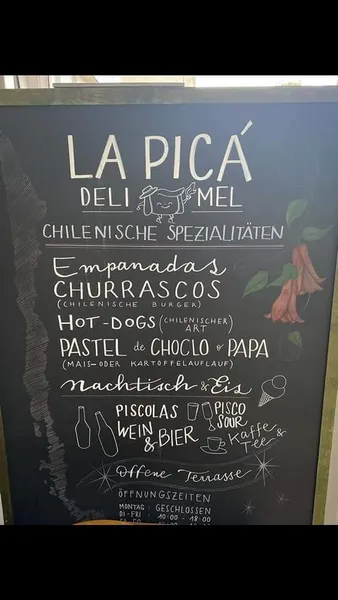 LA PICÁ
DELI MEL
CHILENISCHE SPEZIALITÄTEN
Empanadas
CHURRASCOS
(CHILENISCHE BURGER)
HOT-DOGS (CHILENISCHER ART)
PASTEL de CHOCLO o PAPA
(MAIS- ODER KARTOFFELAUFLAUF)
Nachtisch & Eis
PISCOLAS
WEIN & BIER
PISCO SOUR
Kaffe & TEE
Offene Terrasse
ÖFFNUNGSZEITEN
MONTAG: GESCHLOSSEN
DI-FR: 10:00 - 18:00